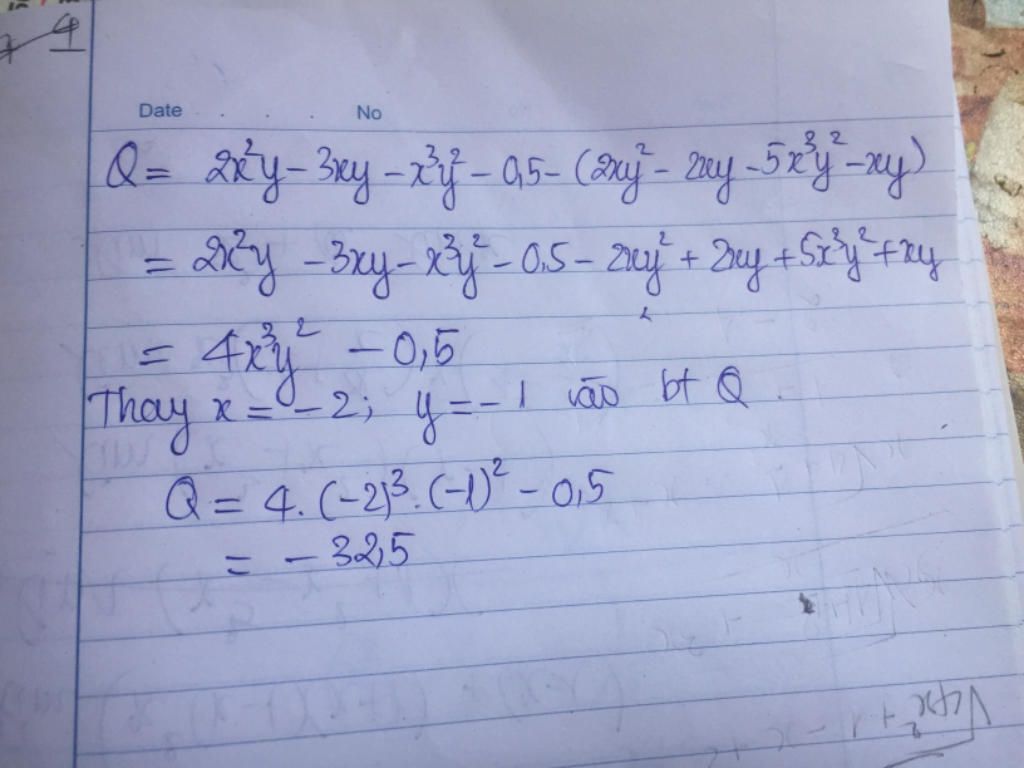 4
Date . . . . No
Q = 2x²y - 3xy - x³y² - 0,5 - (2xy² - 2xy - 5x³y² - xy)
= 2x²y - 3xy - x³y² - 0,5 - 2xy² + 2xy + 5x³y² + xy
= 4x³y² - 0,5
Thay x = -2; y = -1 vào bt Q
Q = 4. (-2)³. (-1)² - 0,5
= - 32,5